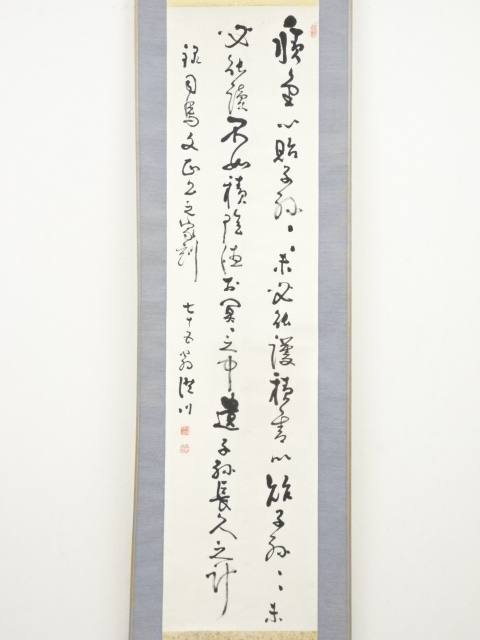 積金以貽子孫〻〻未必能護積書以貽子孫〻〻未
必能讀不如積陰德於冥〻之中遺子孫長久之計
録司馬文正公之家訓 七十五翁洪川